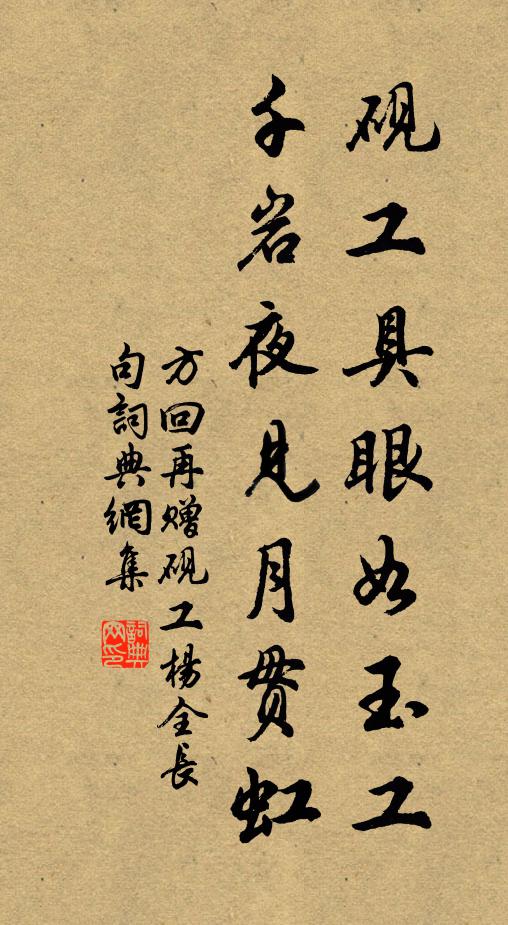 砚工具眼如玉工
千岩夜見月贯虹
方回再赠砚工楊全長
句詞典網集
詞典
网印